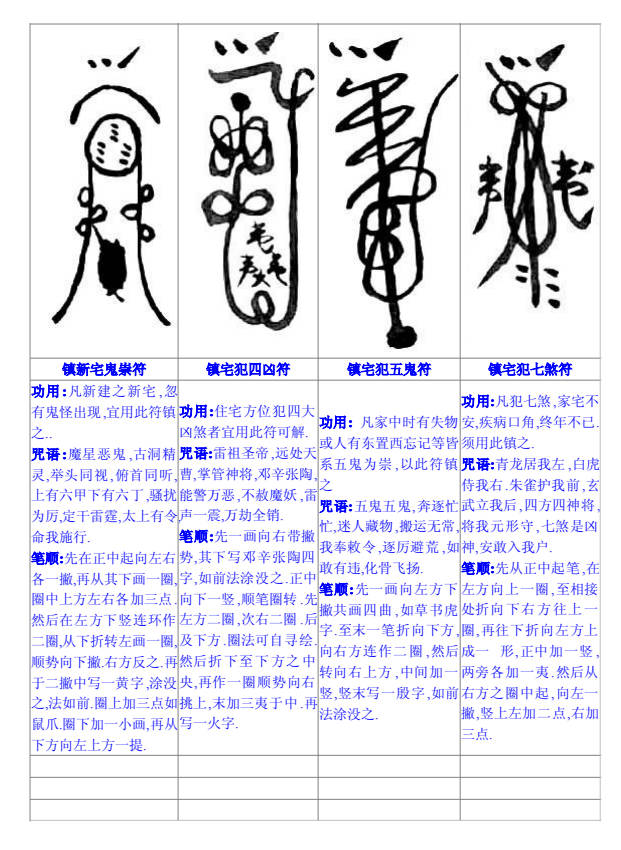 镇新宅鬼祟符
镇宅犯四凶符
镇宅犯五鬼符
镇宅犯七煞符
功用:凡新建之新宅,忽
有鬼怪出现,宜用此符镇
之..
咒语:魔星恶鬼,古洞精
灵,举头同视,俯首同听,
上有六甲下有六丁,骚扰
为厉,定干雷霆,太上有令
命我施行.
笔顺:先在正中起向左右
各一撇,再从其下画一圈,
圈中上方左右各加三点.
然后在左方下竖连环作
二圈,从下折转左画一圈,
顺势向下撇.右方反之.再
于二撇中写一黄字,涂没
之,法如前.圈上加三点如
鼠爪.圈下加一小画,再从
下方向左上方一提.
功用:住宅方位犯四大
凶煞者宜用此符可解.
咒语:雷祖圣帝,远处天
曹,掌管神将,邓辛张陶,
能警万恶,不赦魔妖,雷
声一震,万劫全销.
笔顺:先一画向右带撇
势,其下写邓辛张陶四
字,如前法涂没之.正中
向下一竖,顺笔圈转.先
左方二圈,次右二圈.后
及下方.圈法可自寻绘.
然后折下至下方之中
央,再作一圈顺势向右
挑上,末加三夷于中.再
写一火字.
功用: 凡家中时有失物
或人有东置西忘记等皆
系五鬼为祟,以此符镇
之
咒语:五鬼五鬼,奔逐忙
忙,迷人藏物,搬运无常,
我奉敕令,逐厉避荒,如
敢有违,化骨飞扬.
笔顺:先一画向左方下
撇共画四曲,如草书虎
字.至末一笔折向下方,
向右方连作二圈,然后
转向右上方,中间加一
竖,竖末写一殷字,如前
法涂没之.
功用:凡犯七煞,家宅不
安,疾病口角,终年不已.
须用此镇之.
咒语:青龙居我左,白虎
侍我右.朱雀护我前,玄
武立我后,四方四神将,
将我元形守,七煞是凶
神,安敢入我户.
笔顺:先从正中起笔,在
左方向上一圈,至相接
处折向下右方往上一
圈,再往下折向左方上
成一 形,正中加一竖,
两旁各加一夷.然后从
右方之圈中起,向左一
撇,竖上左加二点,右加
三点.